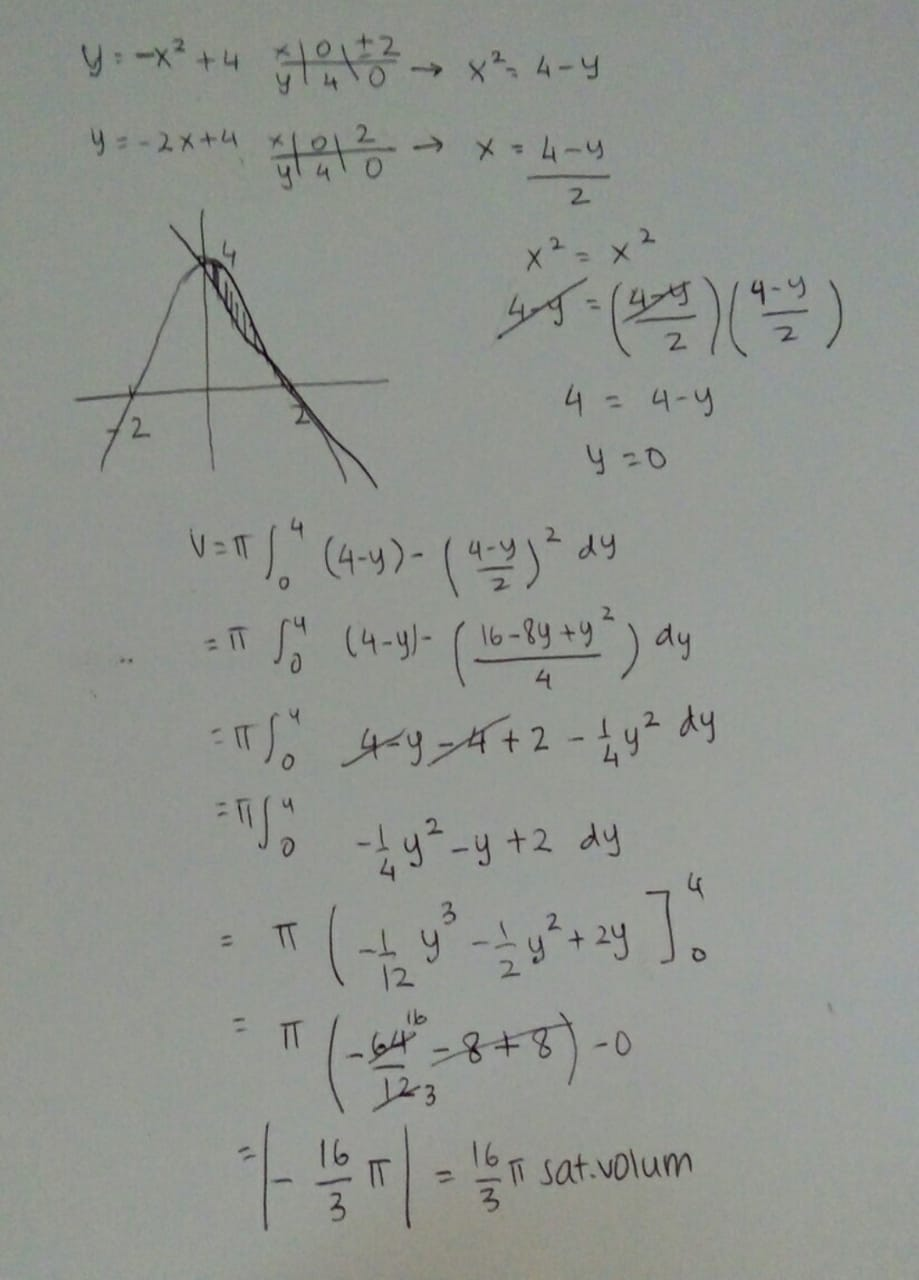 y = -x² + 4 x | 0 | ±2 → x² = 4-y
y | 4 | 0
y = -2x+4 x | 0 | 2 → x = 4-y
y | 4 | 0 2
4
-2 2
x² = x²
4-y = (4-y/2)(4-y/2)
4 = 4-y
y = 0
V = π ∫₀⁴ (4-y) - (4-y/2)² dy
= π ∫₀⁴ (4-y) - (16-8y+y²/4) dy
= π ∫₀⁴ 4-y-4+2 - 1/4 y² dy
= π ∫₀⁴ -1/4 y² - y + 2 dy
= π ( -1/12 y³ - 1/2 y² + 2y ]₀⁴
= π ( -64/12 16/3 - 8 + 8 ) - 0
= | - 16/3 π | = 16/3 π sat.volum